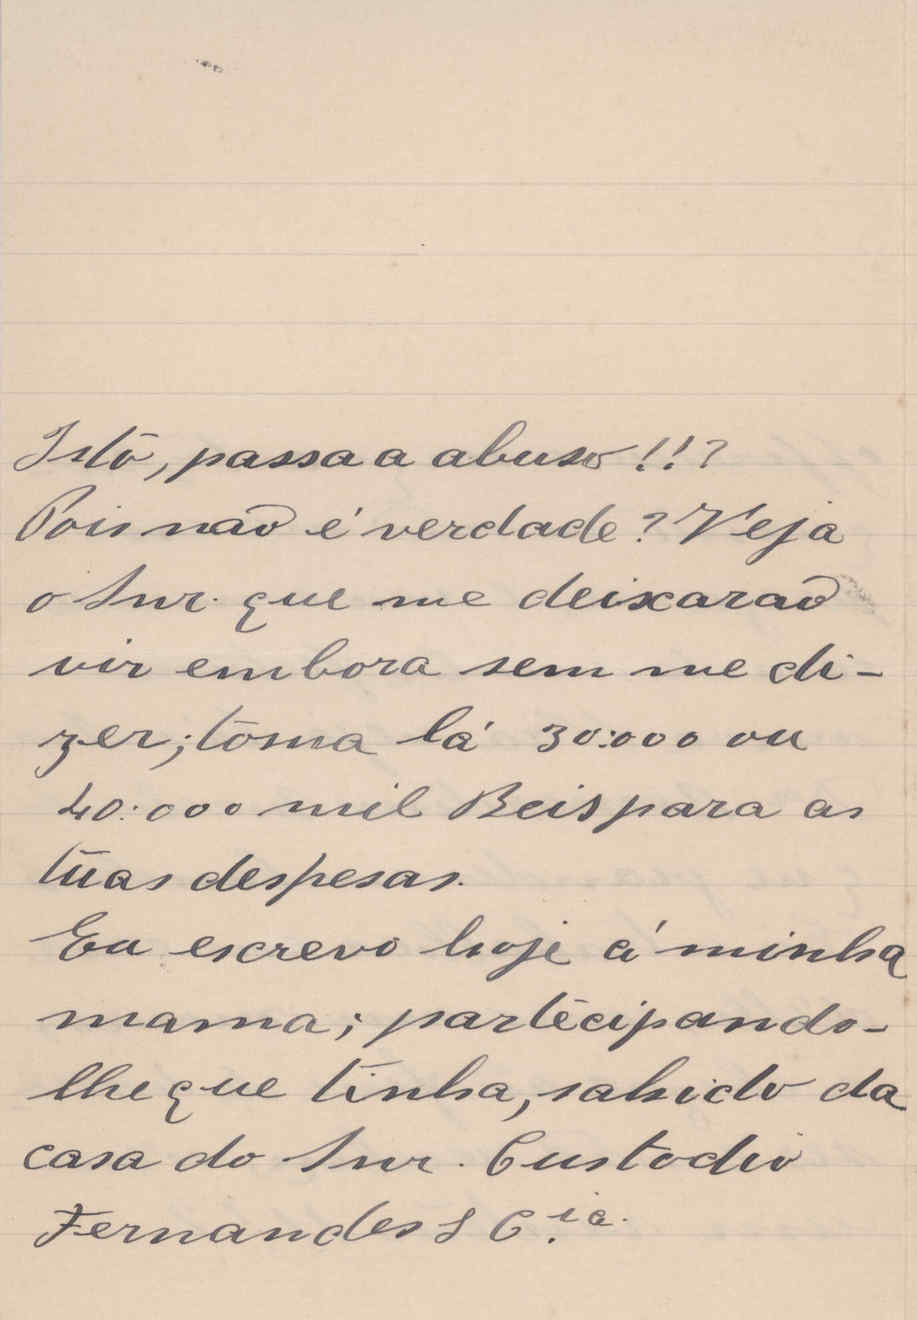 Isto, passa a abuso!!?
Pois não é verdade? Veja
o Snr. que me deixarão
vir embora sem me di-
zer; toma lá 30:000 ou
40:000 mil Reis para as
tuas despesas.
Eu escrevo hoje á minha
mama; partecipando-
lhe que tinha, sahido da
casa do Snr. Custodio
Fernandes & Cia.